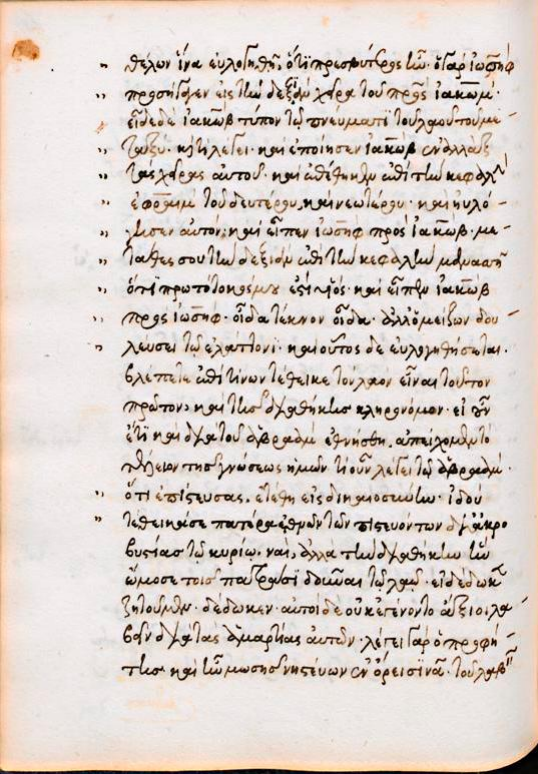 θέλων ἵνα εὐλογηθῆ, ὅτι πρεσβύτερος ἦν· ὁ γὰρ ἰωσὴφ
προσήγαγεν εἰς τὴν δεξιὰν χεῖρα τοῦ πρς ἰακώβ·
εἶδε δὲ ἰακὼβ τύπον τῷ πνεύματι τοῦ λαοῦ τοῦ με-
ταξύ· κ τί λέγει· καὶ ἐποίησεν ἰακὼβ ἐναλλὰξ
τὰς χεῖρας αὐτοῦ· καὶ ἐπέθηκεν ἐπὶ τὴν κεφαλὴν
ἐφραὶμ τοῦ δευτέρου καὶ νεωτέρου· καὶ ηὐλό-
γησεν αὐτόν· καὶ εἶπεν ἰωσὴφ πρὸς ἰακώβ· με-
τάθες σου τὴν δεξιὰν ἐπὶ τὴν κεφαλὴν μανασσῆ
ὅτι πρωτότοκός μου ἐστὶ υἱός· καὶ εἶπεν ἰακὼβ
πρὸς ἰωσήφ· οἶδα τέκνον οἶδα· ἀλλ' ὁ μείζων δου-
λεύσει τῷ ἐλάττονι· καὶ οὗτος δὲ εὐλογηθήσεται.
βλέπετε ἐπὶ τίνων τέθεικε τὸν λαὸν εἶναι τοῦτον
πρῶτον, καὶ τῆς διαθήκης κληρονόμον· εἰ οὖν
ἔτι καὶ διὰ τοῦ ἀβραὰμ ἐμνήσθη, ἀπέχομεν τὸ
τέλειον τῆς γνώσεως ἡμῶν· τί οὖν λέγει τῷ ἀβραάμ·
ὅτι ἐπίστευσας, ἐτέθη εἰς δικαιοσύνην· ἰδού
τέθεικά σε πατέρα ἐθνῶν τῶν πιστευόντων δι' ἀκρο
βυστίας τῷ κυρίῳ. ναί, ἀλλὰ τὴν διαθήκην ἣν
ὤμοσε τοῖς πατράσι δοῦναι τῷ λαῷ· εἰ δέδωκεν
ζητοῦμεν· δέδωκεν· αὐτοὶ δὲ οὐκ ἐγένοντο ἄξιοι λα-
βεῖν διὰ τὰς ἁμαρτίας αὐτῶν· λέγει γὰρ ὁ προφή-
της· καὶ ἦν μωσῆς νηστεύων ἐν ὄρει σινᾶ· τοῦ λαβεῖν